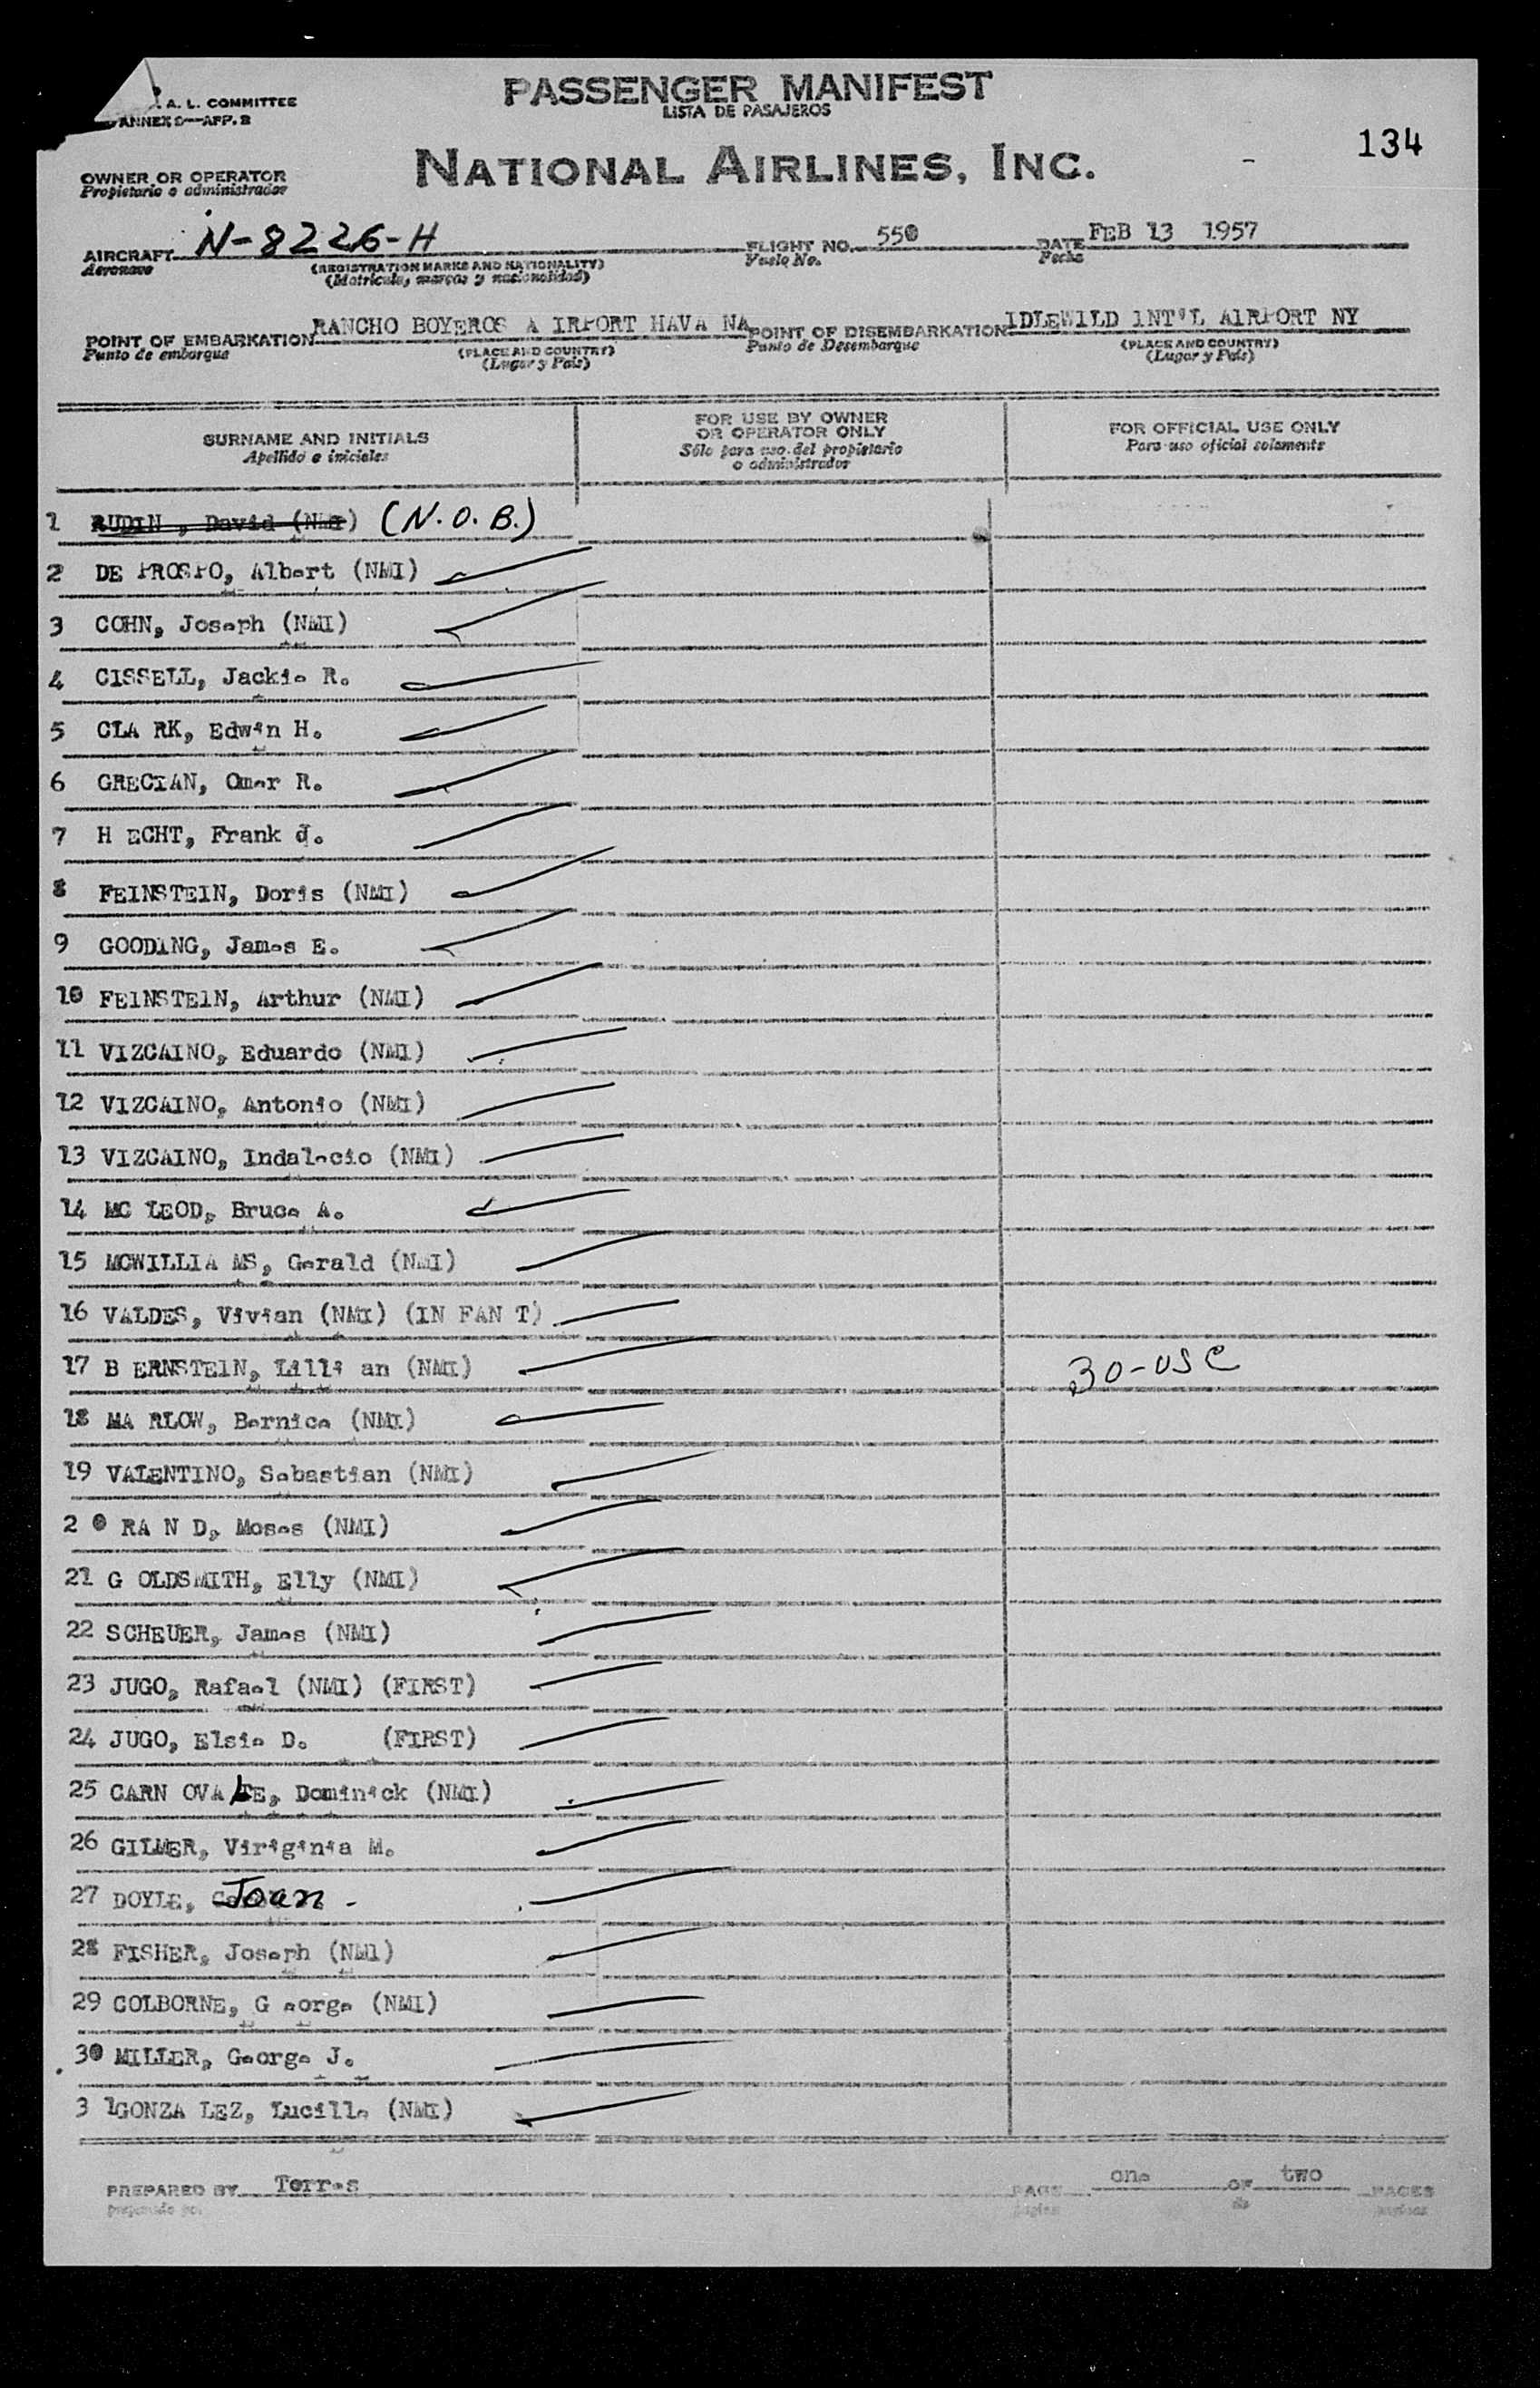 A. L. COMMITTEE
ANNEX 9—APP. 2
PASSENGER MANIFEST
LISTA DE PASAJEROS
134
NATIONAL AIRLINES, INC.
OWNER OR OPERATOR
Propietario o administrador
AIRCRAFT N-8226-H FLIGHT NO. 550 DATE FEB 13 1957
Aeronave (REGISTRATION MARKS AND NATIONALITY) Vuelo No. Fecha
(Matricula, marcas y nacionalidad)
POINT OF EMBARKATION RANCHO BOYEROS A IRPORT HAVA NA POINT OF DISEMBARKATION IDLEWILD 1NT'L A1RPORT NY
Punto de embarque (PLACE AND COUNTRY) Punto de Desembarque (PLACE AND COUNTRY)
(Lugar y País) (Lugar y País)
SURNAME AND INITIALS
Apellido e iniciales
FOR USE BY OWNER
OR OPERATOR ONLY
Sólo para uso del propietario
o administrador
FOR OFFICIAL USE ONLY
Para uso oficial solamente
1 RUDIN , David (NMI) (N.O.B.)
2 DE PROSPO, Albert (NMI)
3 COHN, Joseph (NMI)
4 CISSELL, Jackie R.
5 CLA RK, Edwin H.
6 GRECIAN, Omer R.
7 H ECHT, Frank J.
8 FEINSTEIN, Doris (NMI)
9 GOODING, James E.
10 FEINSTEIN, Arthur (NMI)
11 VIZCAINO, Eduardo (NMI)
12 VIZCAINO, Antonio (NMI)
13 VIZCAINO, Indalecio (NMI)
14 MC LEOD, Bruce A.
15 MCWILLIA MS, Gerald (NMI)
16 VALDES, Vivian (NMI) (IN FAN T)
17 B ERNSTEIN, Lilli an (NMI) 30-USC
18 MA RLOW, Bernice (NMI)
19 VALENTINO, Sebastian (NMI)
2 0 RA N D, Moses (NMI)
21 G OLDSMITH, Elly (NMI)
22 SCHEUER, James (NMI)
23 JUGO, Rafael (NMI) (FIRST)
24 JUGO, Elsie D. (FIRST)
25 CARN OVA LE, Dominick (NMI)
26 GILMER, Viriginia M.
27 DOYLE, Joan -
28 FISHER, Joseph (NMI)
29 COLBORNE, G eorge (NMI)
30 MILLER, George J.
3 1GONZA LEZ, Lucille (NMI)
PREPARED BY Torres PAGE one OF two PAGES
preparado por página de páginas